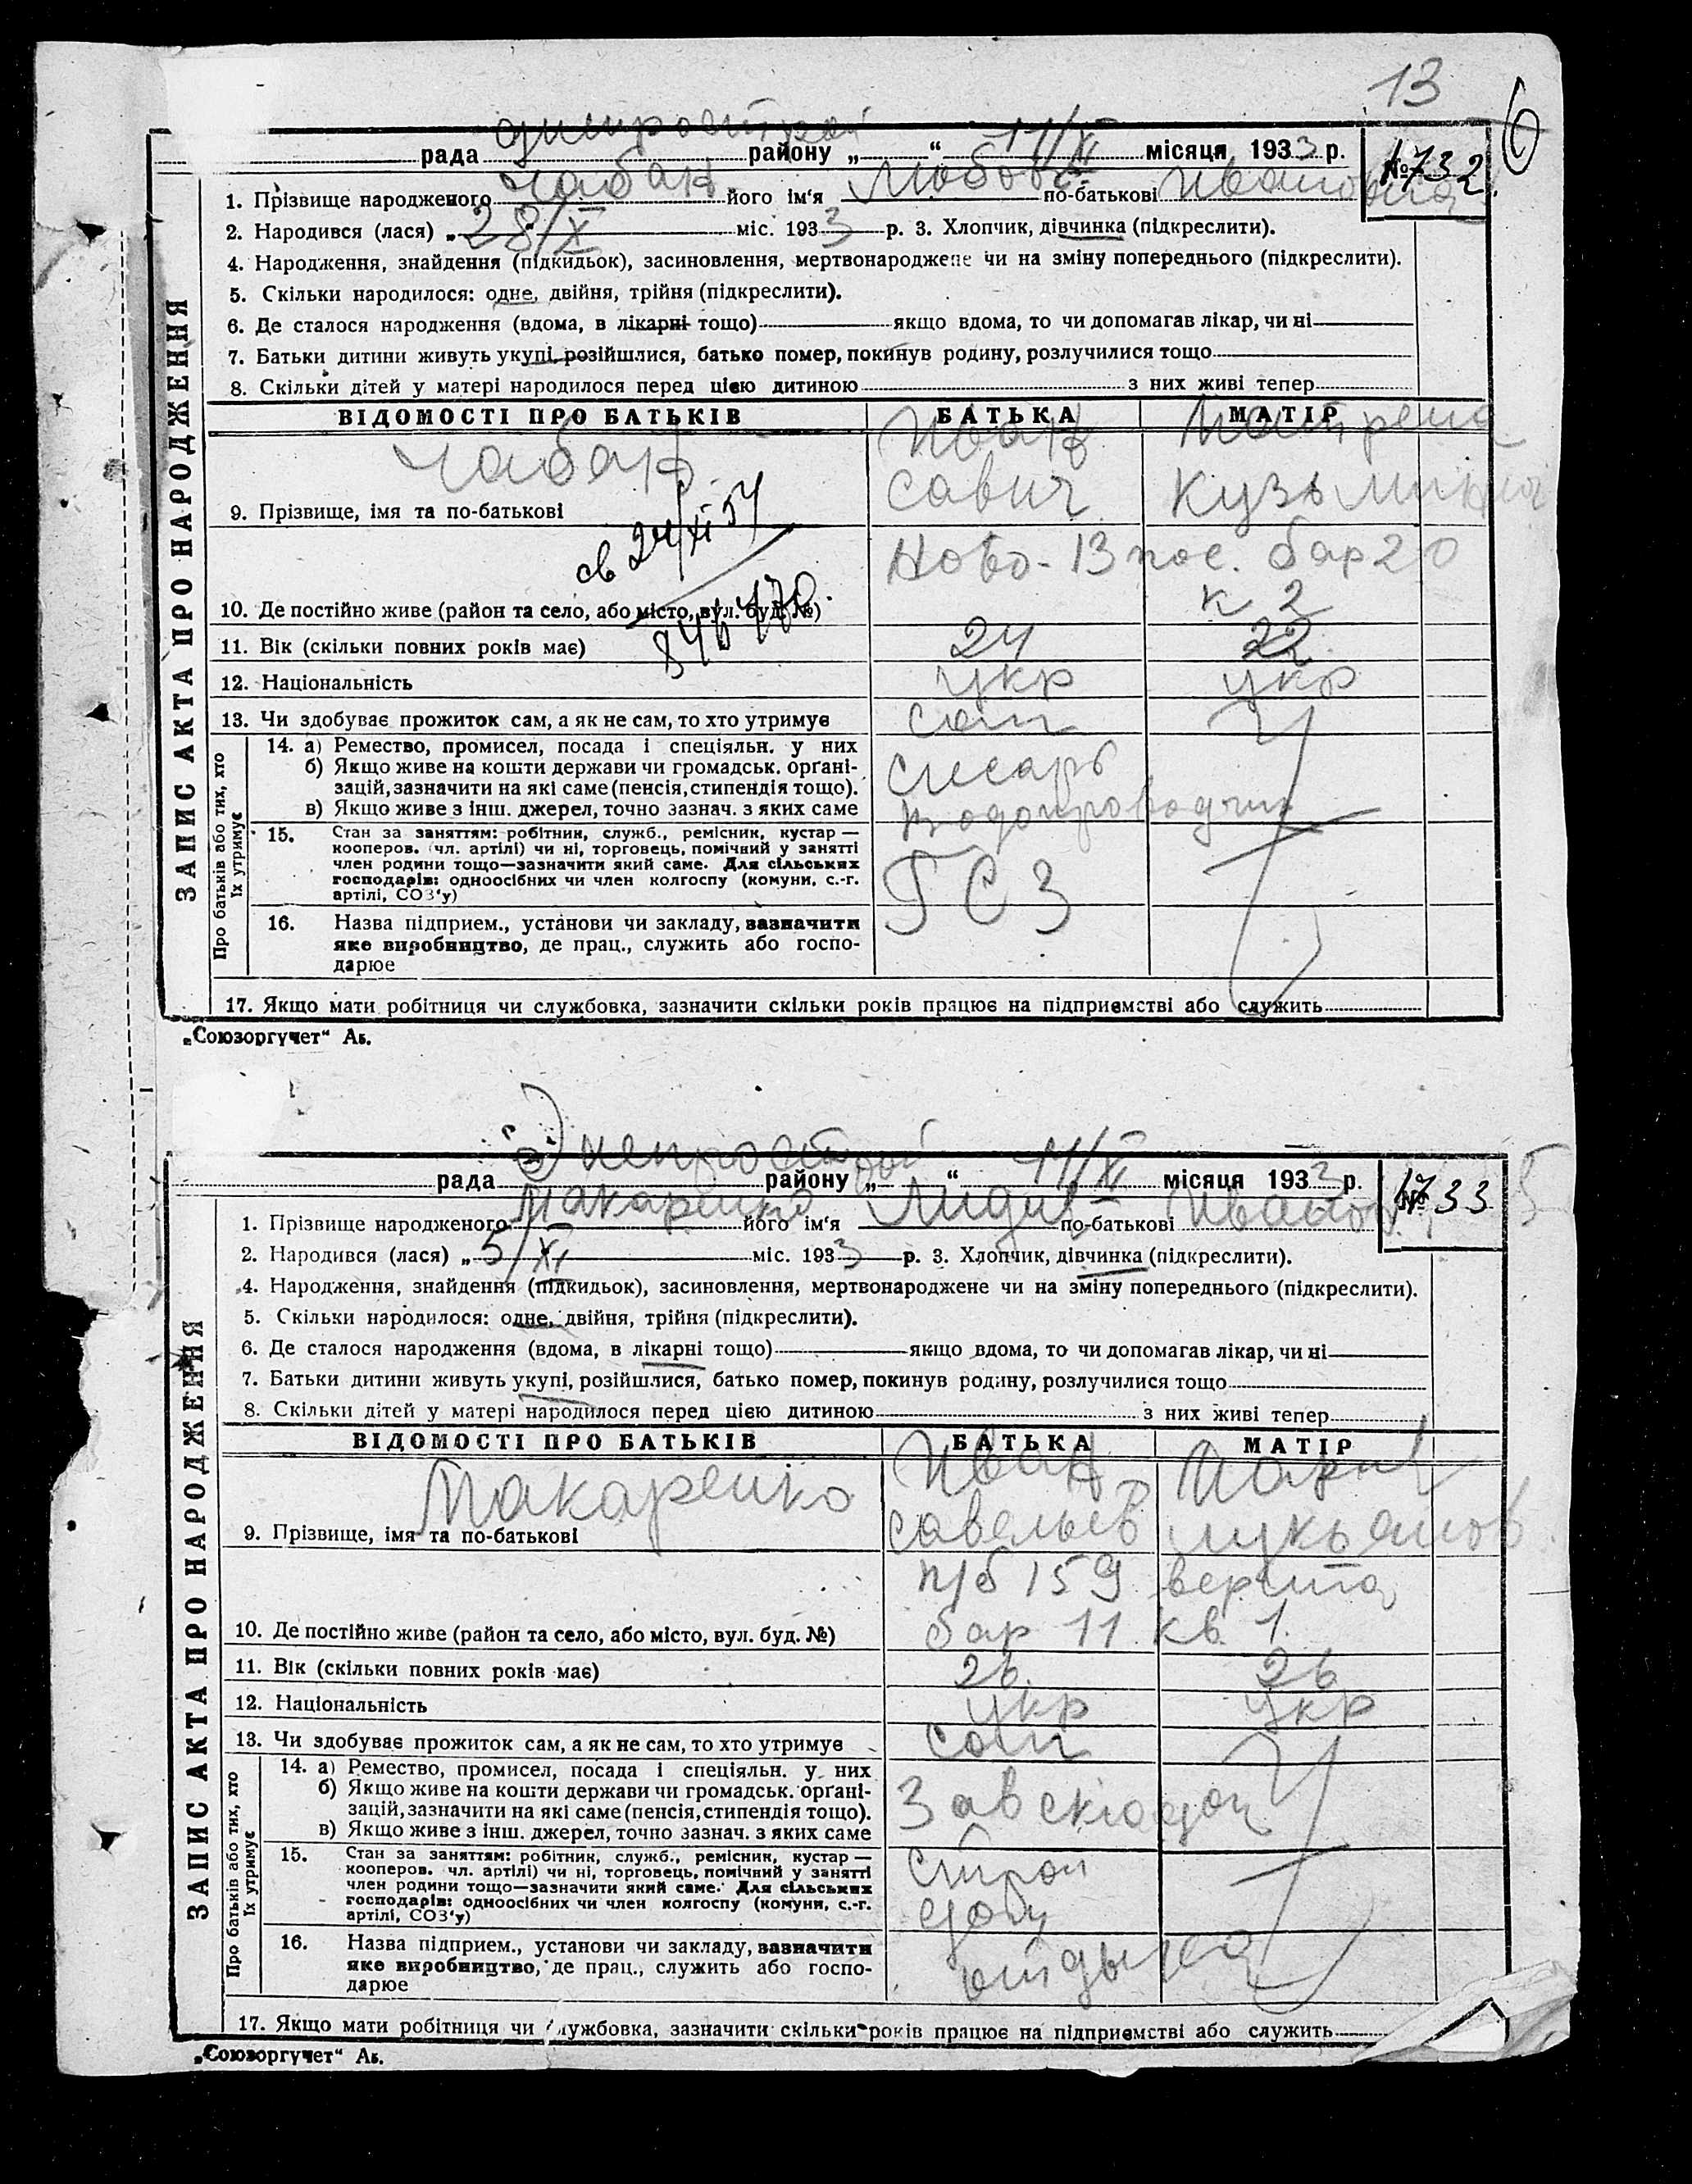 13
6
Днепрострой
рада район у „ “ 11/XI місяця 1933 р. №1732
1. Прізвище народженого Чабан його ім‘я Любовь по-батькові Ивановна
2. Народився (лася) „28/X міс. 1933 р. 3. Хлопчик, дівчинка (підкреслити).
4. Народження, знайдення (підкидьок), засиновлення, мертвонароджене чи на зміну попереднього (підкреслити).
5. Скільки народилося: одне, двійня, трійня (підкреслити).
6. Де сталося народження (вдома, в лікарні тощо) якщо вдома, то чи допомагав лікар, чи ні
7. Батьки дитини живуть укупі, розійшлися, батько помер, покинув родину, розлучилися тощо
8. Скільки дітей у матері народилося перед цією дитиною з них живі тепер
ЗАПИС АКТА ПРО НАРОДЖЕННЯ
ВІДОМОСТІ ПРО БАТЬКІВ БАТЬКА МАТІР
Чабан Иван Матрена
9. Прізвище, імя та по-батькові Савич Кузьминична
св 24/XI 54
846470.
Ново-13 пос. бар 20
к 2
10. Де постійно живе (район та село, або місто, вул. буд. №)
11. Вік (скільки повних років має) 24 22
12. Національність укр укр
13. Чи здобуває прожиток сам, а як не сам, то хто утримує сам
Про батьків або тих, хто їх утримує
14. а) Ремество, промисел, посада і спеціяльн. у них слесарь
б) Якщо живе на кошти держави чи громадськ. орґані-
зацій, зазначити на які саме (пенсія, стипендія тощо).
в) Якщо живе з інш. джерел, точно зазнач. з яких саме водопроводчик
15. Стан за заняттям: робітник, служб., ремісник, кустар —
кооперов. (чл. артілі) чи ні, торговець, помічний у занятті
член родини тощо—зазначити який саме. Для сільських
господарів: одноосібних чи член колгоспу (комуни, с.-г.
артілі, СОЗ‘у)
ГСЗ
16. Назва підприєм., установи чи закладу, зазначити
яке виробництво, де прац., служить або госпо-
дарює
17. Якщо мати робітниця чи службовка, зазначити скільки років працює на підприємстві або служить
„Союзоргучет“ Аб.
Днепрострой
рада району „ “ 11/XI місяця 1933 р. №1733
5
1. Прізвище народженого Макаренко його ім‘я Лидия по-батькові Иванов
2. Народився (лася) „5/XI міс. 1933 р. 3. Хлопчик, дівчинка (підкреслити).
4. Народження, знайдення (підкидьок), засиновлення, мертвонароджене чи на зміну попереднього (підкреслити).
5. Скільки народилося: одне, двійня, трійня (підкреслити).
6. Де сталося народження (вдома, в лікарні тощо) якщо вдома, то чи допомагав лікар, чи ні
7. Батьки дитини живуть укупі, розійшлися, батько помер, покинув родину, розлучилися тощо
8. Скільки дітей у матері народилося перед цією дитиною з них живі тепер
ЗАПИС АКТА ПРО НАРОДЖЕННЯ
ВІДОМОСТІ ПРО БАТЬКІВ БАТЬКА МАТІР
Макаренко Иван Мария
9. Прізвище, імя та по-батькові Савельев Лукьянов
п/б 159
10. Де постійно живе (район та село, або місто, вул. буд. №) бар 11 кв. 1
11. Вік (скільки повних років має) 26 26
12. Національність укр укр
13. Чи здобуває прожиток сам, а як не сам, то хто утримує сам
Про батьків або тих, хто їх утримує
14. а) Ремество, промисел, посада і спеціяльн. у них
б) Якщо живе на кошти держави чи громадськ. орґані-
зацій, зазначити на які саме (пенсія, стипендія тощо). Зав складом
в) Якщо живе з інш. джерел, точно зазнач. з яких саме
15. Стан за заняттям: робітник, служб., ремісник, кустар —
кооперов. чл. артілі) чи ні, торговець, помічний у занятті
член родини тощо—зазначити який саме. Для сільських
господарів: одноосібних чи член колгоспу (комуни, с.-г.
артілі, СОЗ‘у)
Строй
дом
16. Назва підприєм., установи чи закладу, зазначити
яке виробництво, де прац., служить або госпо- отдыха
дарює
17. Якщо мати робітниця чи службовка, зазначити скільки років працює на підприємстві або служить
„Союзоргучет“ Аб.